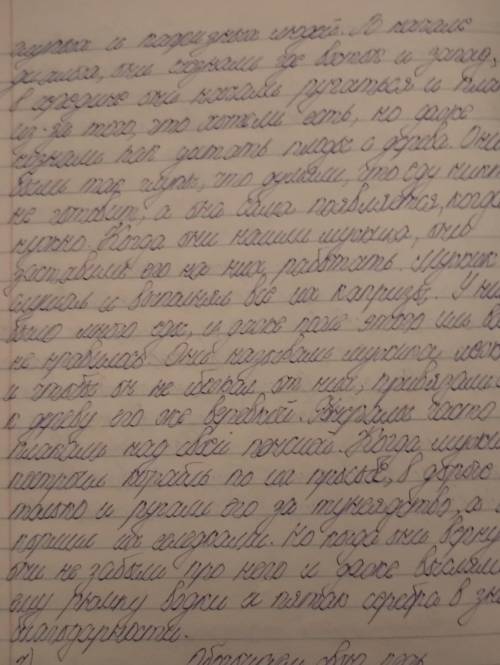 глупых и капризных людей. В начале
фильма, они не знали где восток и запад,
в середине они начали ругаться и плак
из-за того, что хотели есть, но даже
не знали как достать плоды с дерева. Они
были так глупы, что думали, что еду никт
не готовит, а она сама появляется, когда
нужно. Когда они нашли мужика, они
заставили его на них работать. Мужик
слушал и выполнял все их капризы. У них
было много еды, и даже после этого им вс
не нравилось. Они называли мужика
и чтобы он не сбежал от них, привязали
к дереву его же веревкой. Генералы часто
плакали над своей пенсией. Когда мужик
построил корабль по их просьбе, в дороге
только и ругали его за тунеядство, а
кормил их селедками. Но когда они верну
они не забыли про него и даже выслали
ему рюмку водки и пятак серебра в зна
благодарности.